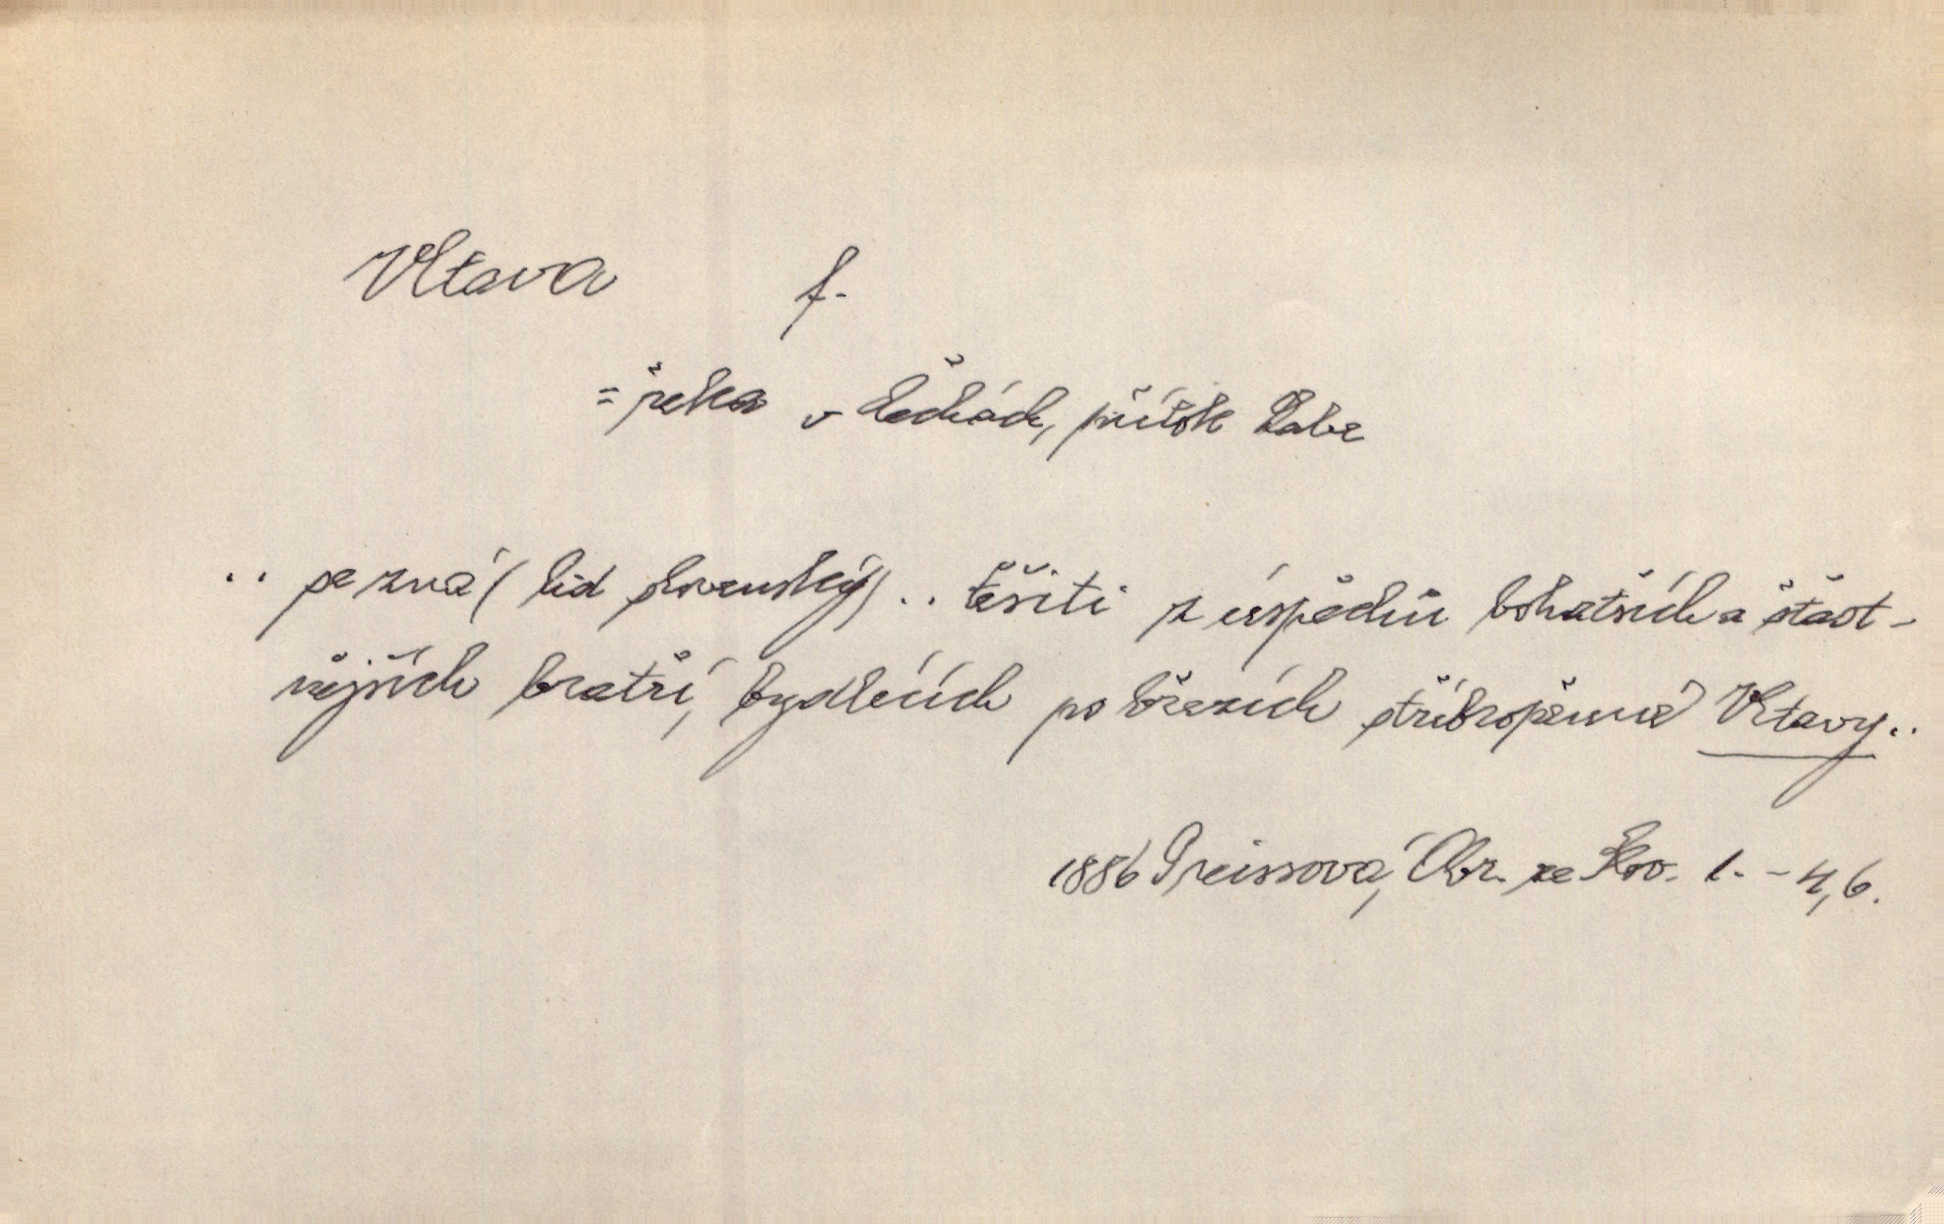 Vltava f.
= řeka v Čechách, přítok Labe
.. se zná (lid slovenský) .. těšiti z úspěchů bohatších a šťast-
nějších bratří, bydlících po březích stříbropěnné Vltavy..
1886 Preissová, Obr. ze Slov. 1. - 4, 6.